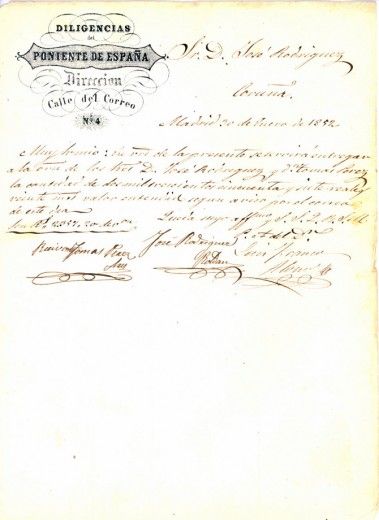 DILIGENCIAS
del
PONIENTE DE ESPAÑA
Direccion
Calle del Correo
Nº 4
Sr. D. José Rodriguez
Coruña.
Madrid 20 de Enero de 1852
Muy Sr. mio: en de la presente se servirá entregar
a la de los Sres. D. José Rodriguez y Dn. Tomas Perez
la cantidad de dos mil trescientos cincuenta y siete reales
veinte mrs. valor entendido segun aviso por el correo
de este dia
Son Rs. 2357,,20 mrs.
Queda suyo affmo. S. S. Q. B. S. M.
Tomas Perez
José Rodriguez
Roldan